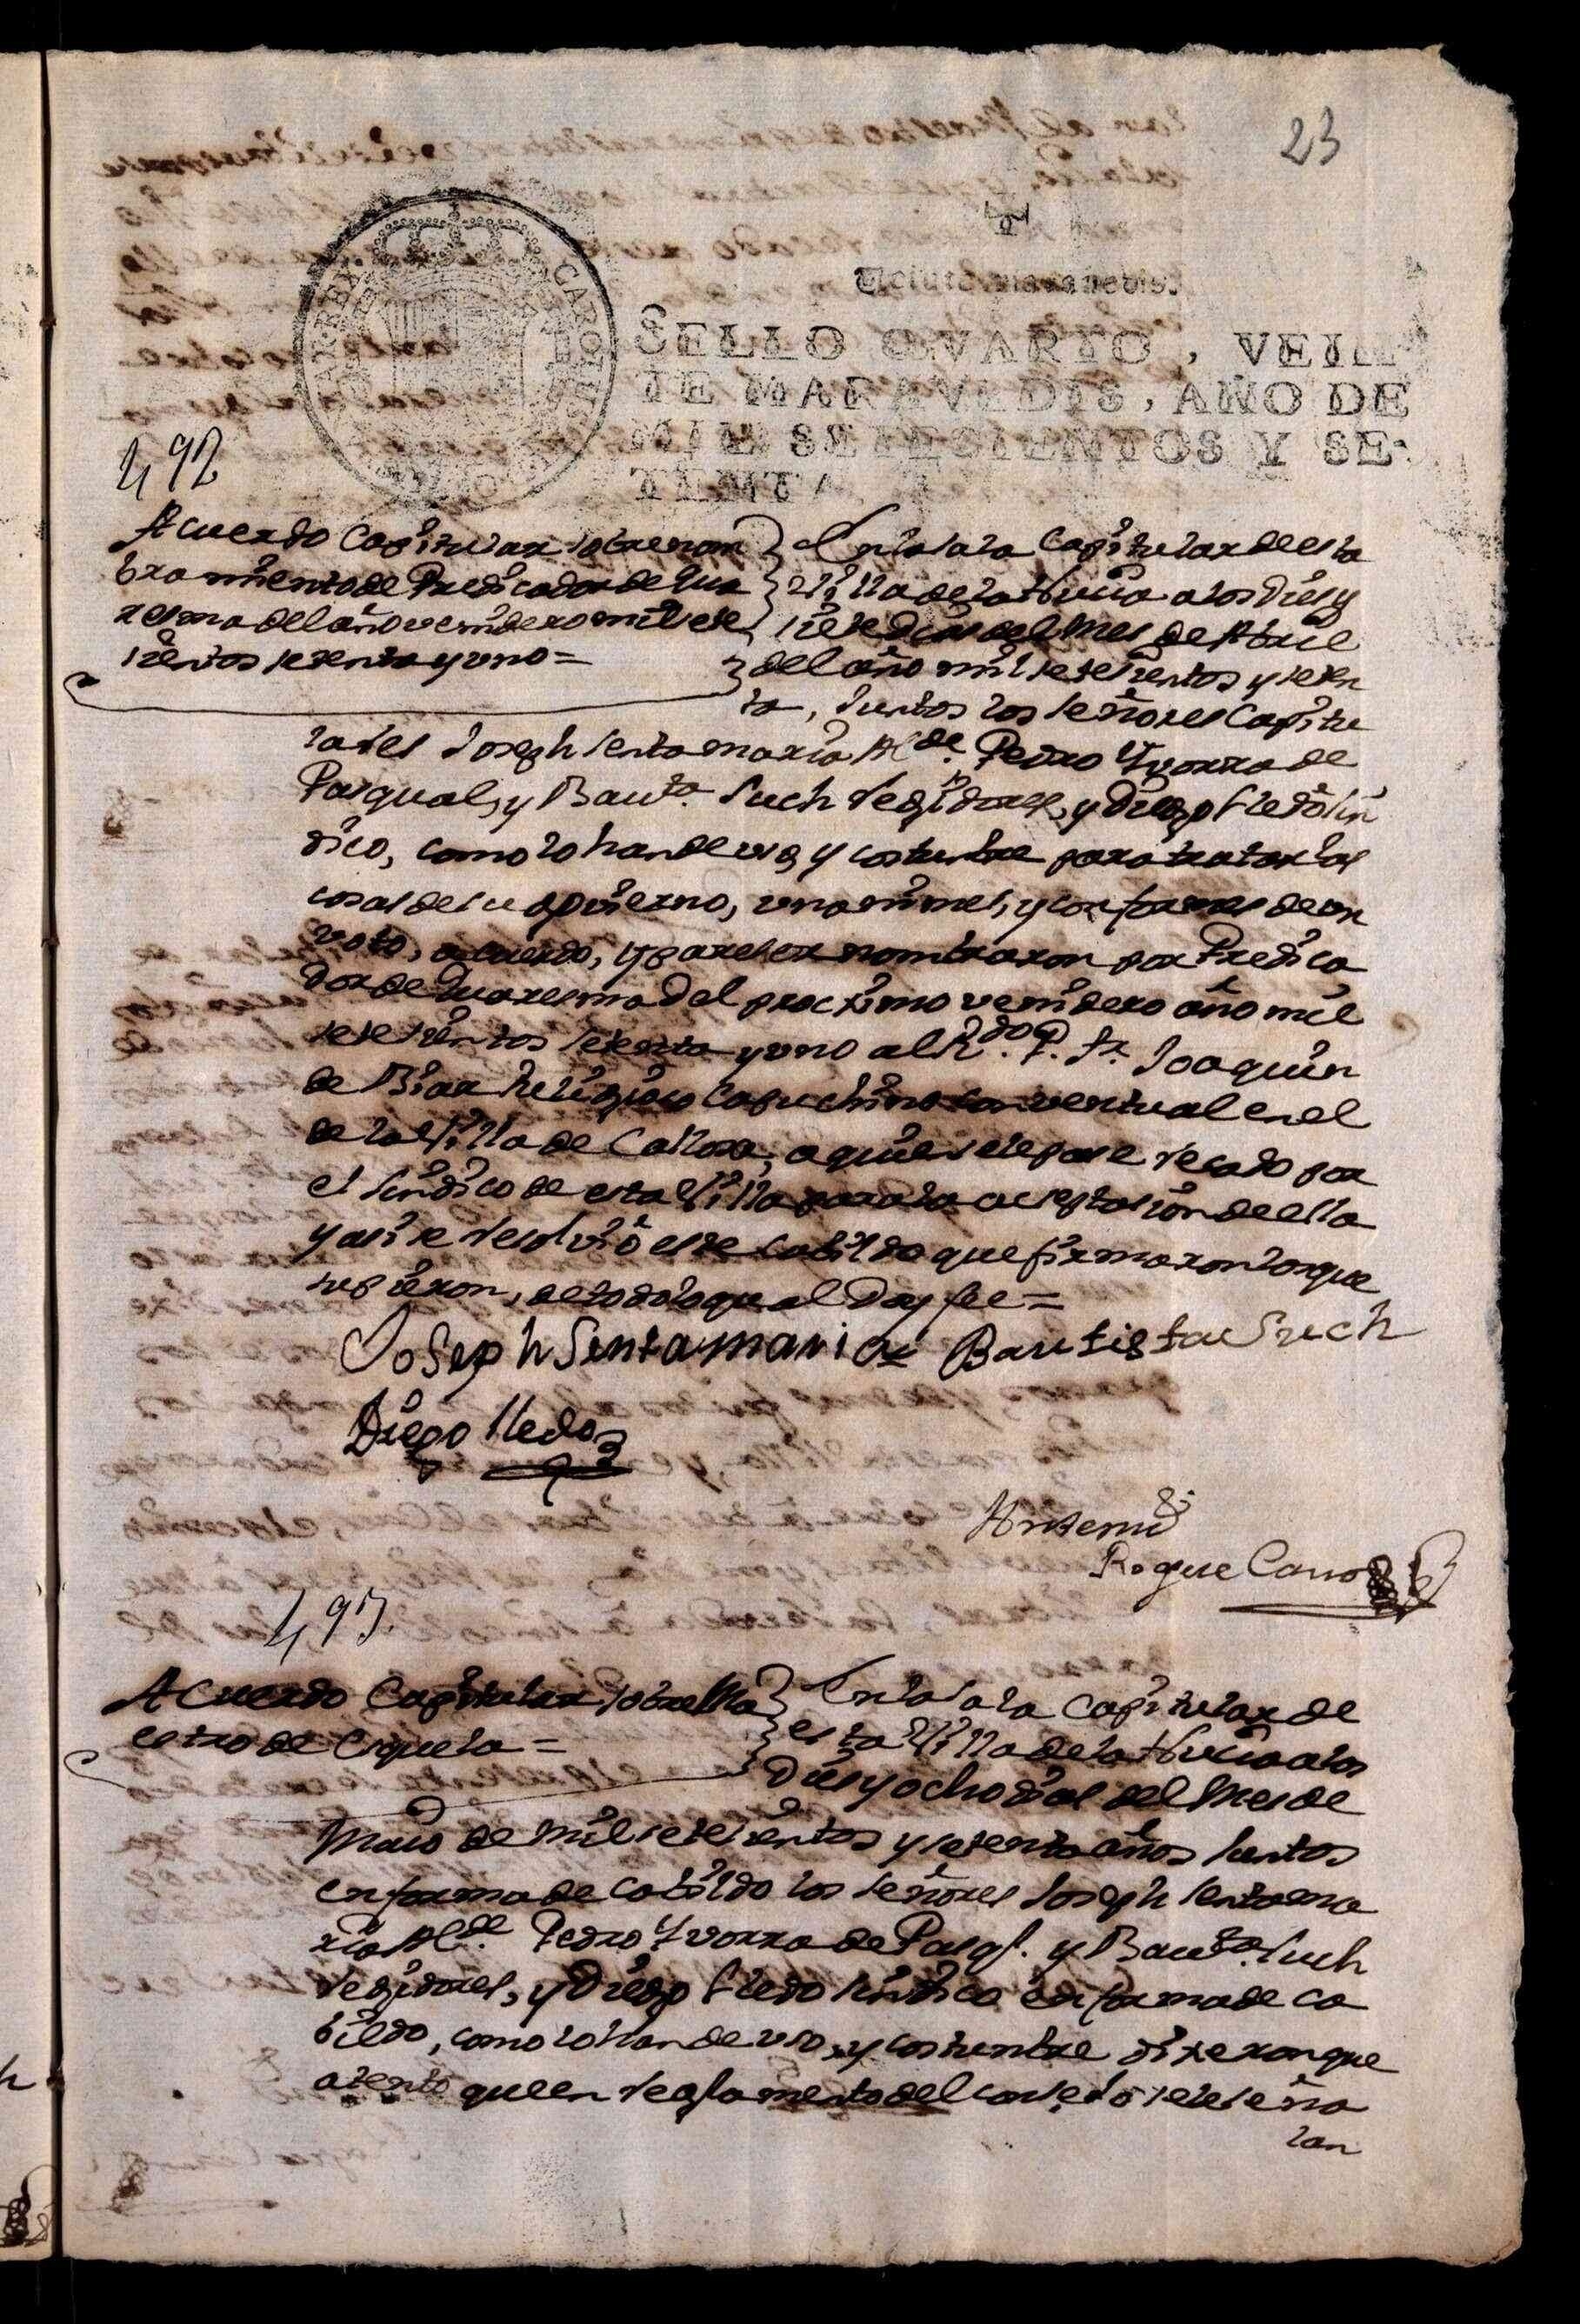 23
Veinte maravedis.
SELLO QVARTO, VEIN
TE MARAVEDIS, AÑO DE
MIL SETECIENTOS Y SE-
TENTA.
492
Acuerdo Capitular sobre nom
bramiento de Predicador de Qua
resma del año venidero mil sete
sientos setenta y uno =
En la sala Capitular de esta
Villa de la Nucia a los Dies y
siete dias del Mes de Abril
del año mil setesientos y seten
ta, Juntos los señores Capitu
lares Joseph Sentamaria Al.de Pedro Yvorra de
Pasqual, y Bau.ta Such Regidores, y Diego Lledo Sin
dico, como lo han de uso, y costumbre para tratar las
cosas de su govierno, unanimes, y conformes de un
voto, acuerdo, y pareser nombraron por Predica
dor de Quaresma del procximo venidero año mil
setesientos setenta y uno al R.do P. Fr. Joaquin
de Biar Religioso Capuchino conventual en el
de la Villa de Callosa, a quien se le pase recado por
el Sindico de esta Villa para la aceptasion de ella
y asi se resolvio este Cabildo que firmaron los que
supieron, de todo lo qual Doy fee =
Joseph Sentamaria Bautista Such
Diego Lledo
Antemi
Roque Cano
493.
Acuerdo Capitular sobre Ma
estro de Esquela =
En la sala Capitular de
esta Villa de la Nucia a los
Dies y ocho dias del Mes de
Maio de mil setesientos y setenta años Juntos
en forma de cabildo los señores Joseph Sentama
ria Al.de Pedro Yvorra de Pasql. y Bau.ta Such
Regidores, y Diego Lledo Sindico en forma de ca
bildo, como lo han de uso, y costumbre dixeron que
atento que en Reglamento del consejo se le seña
lan